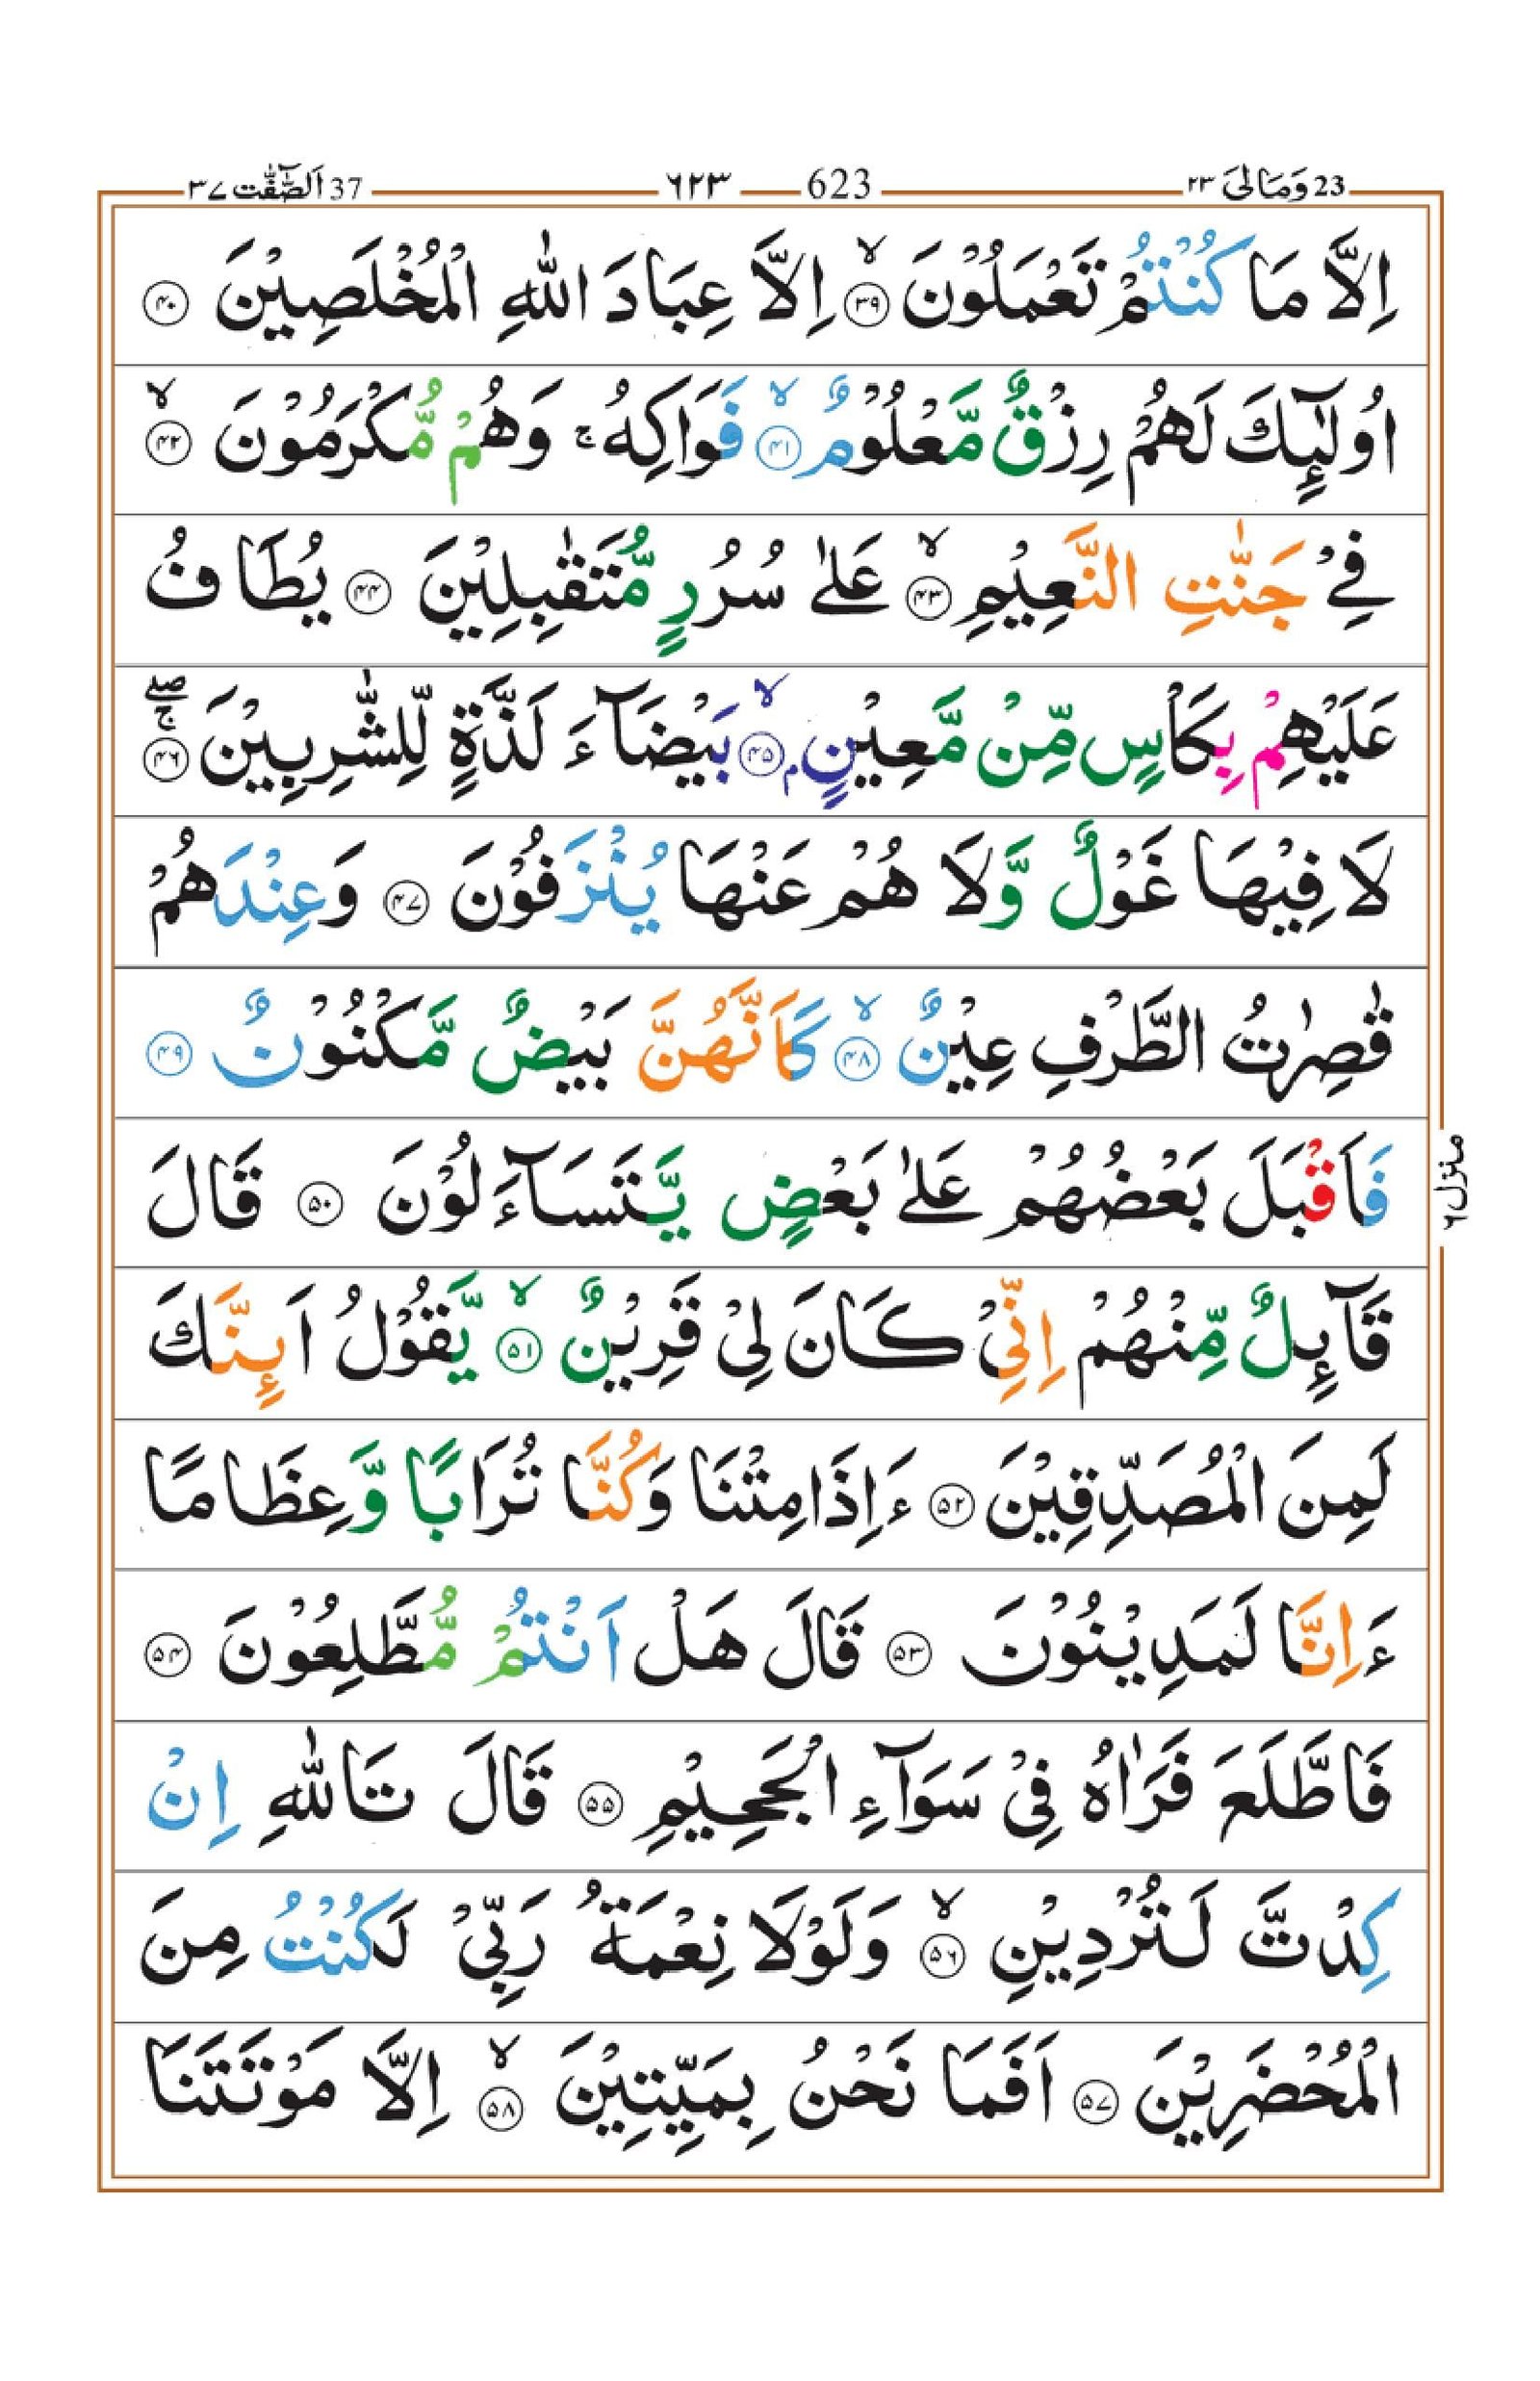 37 اَلصّٰٓفّٰت ٣٧ ٦٢٣ 623 23 وَمَالِیَ ٢٣
اِلَّا مَا كُنْتُمْ تَعْمَلُوْنَ ۙ‏﴿۳۹﴾ اِلَّا عِبَادَ اللّٰهِ الْمُخْلَصِیْنَ ﴿۴۰﴾
اُولٰٓىِٕكَ لَهُمْ رِزْقٌ مَّعْلُوْمٌ ۙ﴿۴۱﴾ فَوَاكِهُ ۚ وَهُمْ مُّكْرَمُوْنَ ۙ﴿۴۲﴾
فِیْ جَنّٰتِ النَّعِیْمِ ۙ﴿۴۳﴾ عَلٰی سُرُرٍ مُّتَقٰبِلِیْنَ ﴿۴۴﴾ یُطَافُ
عَلَیْهِمْ بِكَاْسٍ مِّنْ مَّعِیْنٍۭ ۙ﴿۴۵﴾ بَیْضَآءَ لَذَّةٍ لِّلشّٰرِبِیْنَ ۖۚ﴿۴۶﴾
لَا فِیْهَا غَوْلٌ وَّلَا هُمْ عَنْهَا یُنْزَفُوْنَ ﴿۴۷﴾ وَعِنْدَهُمْ
قٰصِرٰتُ الطَّرْفِ عِیْنٌ ۙ﴿۴۸﴾ كَاَنَّهُنَّ بَیْضٌ مَّكْنُوْنٌ ﴿۴۹﴾
فَاَقْبَلَ بَعْضُهُمْ عَلٰی بَعْضٍ یَّتَسَآءَلُوْنَ ﴿۵۰﴾ قَالَ
منزل٦
قَآىِٕلٌ مِّنْهُمْ اِنِّیْ كَانَ لِیْ قَرِیْنٌ ۙ﴿۵۱﴾ یَّقُوْلُ اَىِٕنَّكَ
لَمِنَ الْمُصَدِّقِیْنَ ﴿۵۲﴾ ءَاِذَا مِتْنَا وَكُنَّا تُرَابًا وَّعِظَامًا
ءَاِنَّا لَمَدِیْنُوْنَ ﴿۵۳﴾ قَالَ هَلْ اَنْتُمْ مُّطَّلِعُوْنَ ﴿۵۴﴾
فَاطَّلَعَ فَرَاٰهُ فِیْ سَوَآءِ الْجَحِیْمِ ﴿۵۵﴾ قَالَ تَاللّٰهِ اِنْ
كِدْتَّ لَتُرْدِیْنِ ۙ﴿۵۶﴾ وَلَوْلَا نِعْمَةُ رَبِّیْ لَكُنْتُ مِنَ
الْمُحْضَرِیْنَ ﴿۵۷﴾ اَفَمَا نَحْنُ بِمَیِّتِیْنَ ۙ﴿۵۸﴾ اِلَّا مَوْتَتَنَا